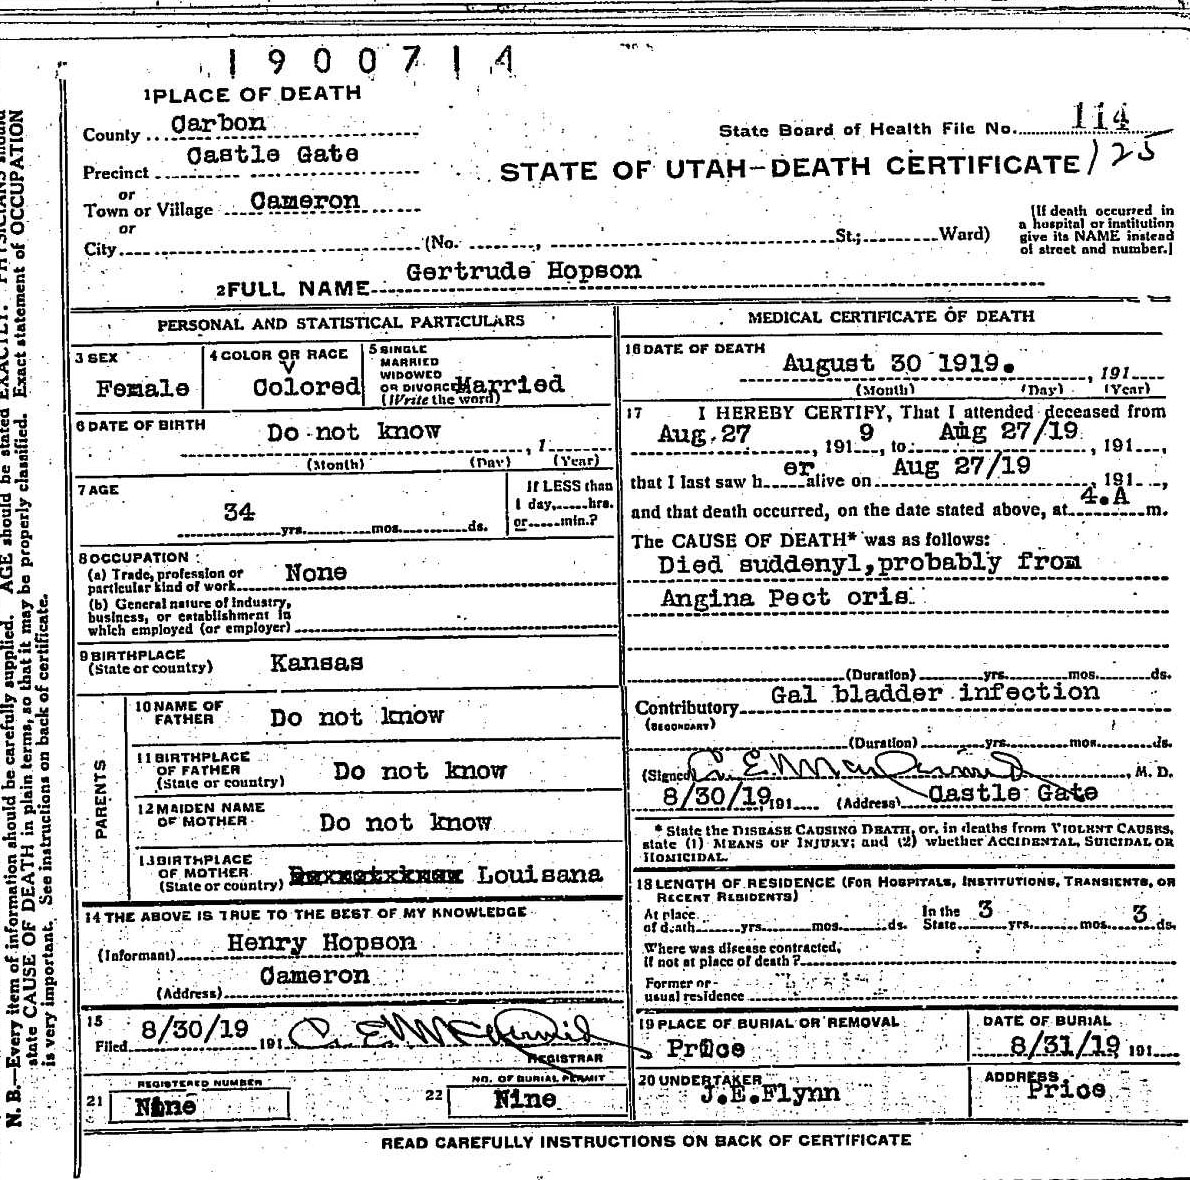 1900714
1 PLACE OF DEATH
County Carbon
State Board of Health File No. 114
125
Precinct Castle Gate
STATE OF UTAH—DEATH CERTIFICATE
or
Town or Village Cameron
or
City (No. , St.; Ward)
[If death occurred in
a hospital or institution
give its NAME instead
of street and number.]
2 FULL NAME Gertrude Hopson
PERSONAL AND STATISTICAL PARTICULARS
3 SEX
Female
4 COLOR OR RACE
Colored
5 SINGLE
MARRIED
WIDOWED
OR DIVORCED Married
(Write the word)
6 DATE OF BIRTH
Do not know , 1
(Month) (Day) (Year)
7 AGE
34 yrs. mos. ds.
If LESS than
1 day, hrs.
or min.?
8 OCCUPATION
(a) Trade, profession or
particular kind of work None
(b) General nature of industry,
business, or establishment in
which employed (or employer)
9 BIRTHPLACE
(State or country) Kansas
PARENTS
10 NAME OF
FATHER Do not know
11 BIRTHPLACE
OF FATHER
(State or country) Do not know
12 MAIDEN NAME
OF MOTHER Do not know
13 BIRTHPLACE
OF MOTHER
(State or country) Louisana
14 THE ABOVE IS TRUE TO THE BEST OF MY KNOWLEDGE
(Informant) Henry Hopson
(Address) Cameron
15
Filed 8/30/19 191
REGISTRAR
REGISTERED NUMBER
21 Nine
NO. OF BURIAL PERMIT
22 Nine
MEDICAL CERTIFICATE OF DEATH
16 DATE OF DEATH
August 30 1919. , 191
(Month) (Day) (Year)
17 I HEREBY CERTIFY, That I attended deceased from
Aug.27 , 191 9 , to Aug 27/19 , 191 ,
that I last saw h er alive on Aug 27/19 , 191 ,
and that death occurred, on the date stated above, at 4.A m.
The CAUSE OF DEATH* was as follows:
Died suddenyl,probably from
Angina Pect oris
(Duration) yrs. mos. ds.
Contributory Gal bladder infection
(SECONDARY)
(Duration) yrs. mos. ds.
(Signed) , M. D.
8/30/19 191 (Address) Castle Gate
* State the DISEASE CAUSING DEATH, or, in deaths from VIOLENT CAUSES,
state (1) MEANS OF INJURY; and (2) whether ACCIDENTAL, SUICIDAL OR
HOMICIDAL.
18 LENGTH OF RESIDENCE (FOR HOSPITALS, INSTITUTIONS, TRANSIENTS, OR
RECENT RESIDENTS)
At place
of death yrs. mos. ds.
In the
State 3 yrs. mos. 3 ds.
Where was disease contracted,
if not at place of death?
Former or
usual residence
19 PLACE OF BURIAL OR REMOVAL
Price
DATE OF BURIAL
8/31/19 191
20 UNDERTAKER
J.E.Flynn
ADDRESS
Price
READ CAREFULLY INSTRUCTIONS ON BACK OF CERTIFICATE
N. B.—Every item of information should be carefully supplied. AGE should be stated EXACTLY. PHYSICIANS should
state CAUSE OF DEATH in plain terms, so that it may be properly classified. Exact statement of OCCUPATION
is very important. See instructions on back of certificate.